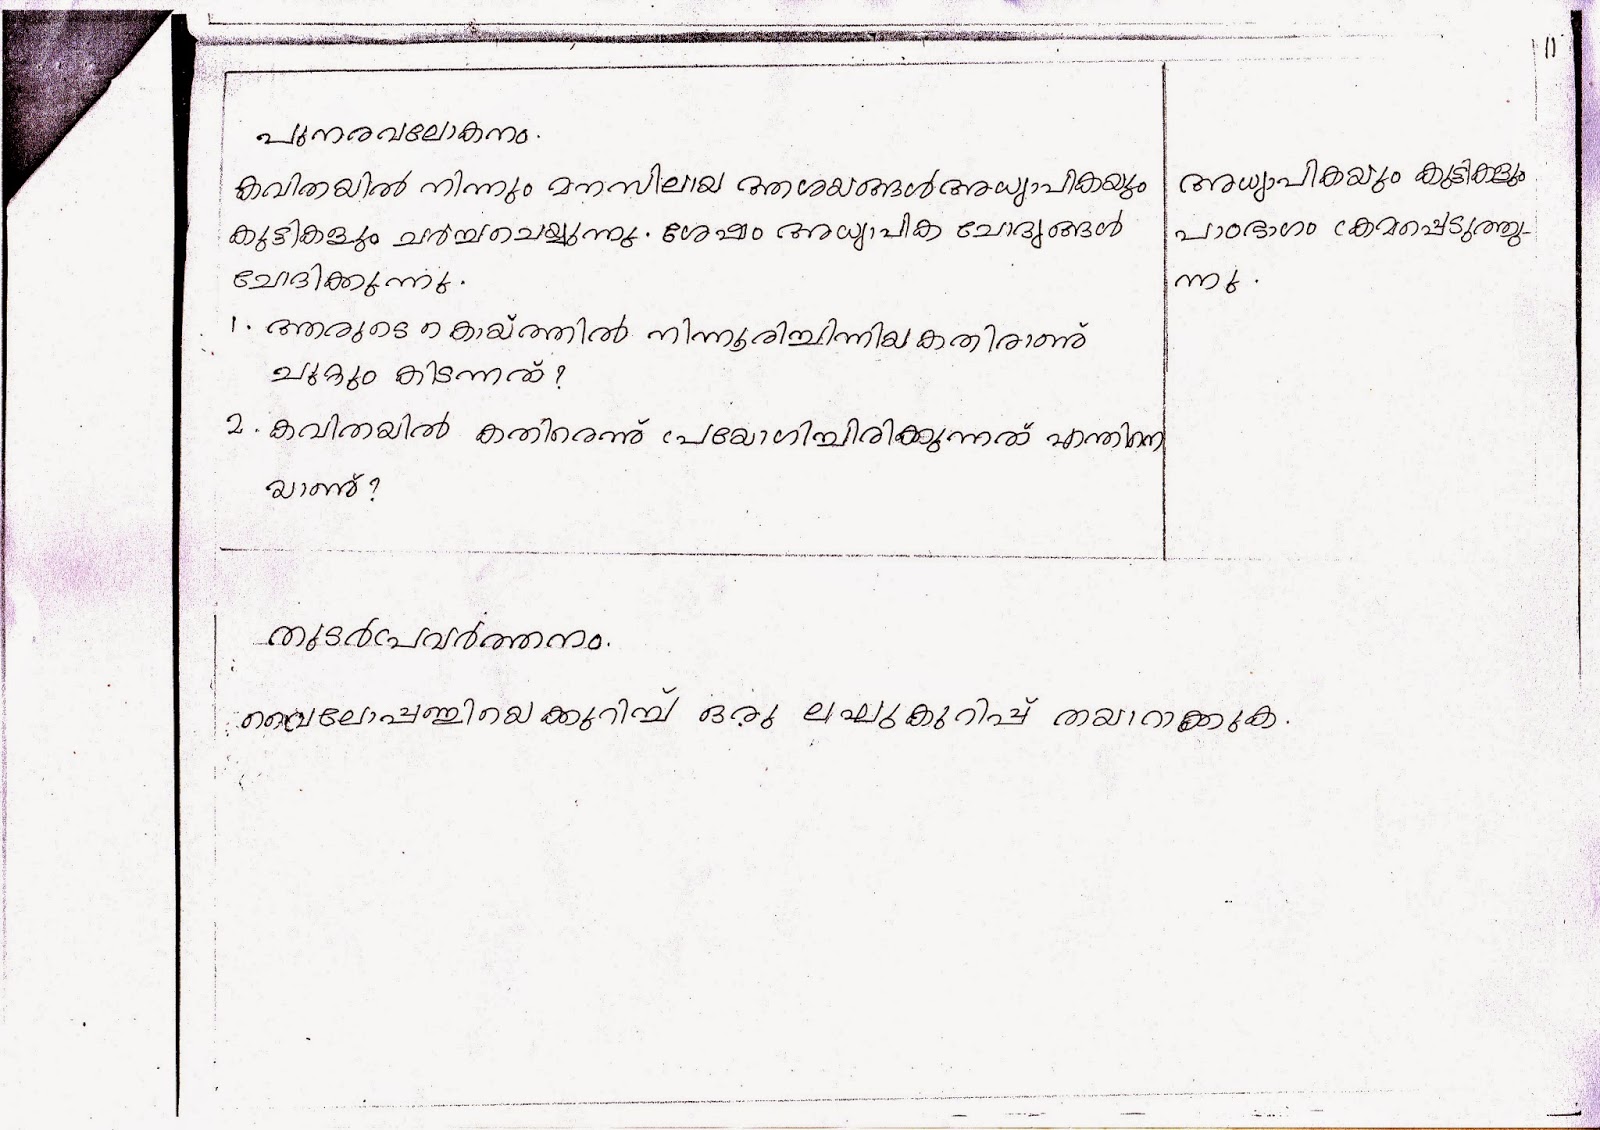 11
പുനരവലോകനം.
കവിതയിൽ നിന്നും മനസിലായ ആശയങ്ങൾ അധ്യാപികയും
കുട്ടികളും ചർച്ചചെയ്യുന്നു. ശേഷം അധ്യാപിക ചോദ്യങ്ങൾ
ചോദിക്കുന്നു.
1. ആരുടെ കൊയ്ത്തിൽ നിന്നൂരിച്ചിന്നിയ കതിരാണ്
ചുറ്റും കിടന്നത്?
2. കവിതയിൽ കതിരെന്ന് പ്രയോഗിച്ചിരിക്കുന്നത് എന്തിനെ
യാണ്?
അധ്യാപികയും കുട്ടികളും
പാഠഭാഗം ക്രമപ്പെടുത്തു-
ന്നു.
തുടർപ്രവർത്തനം.
വൈലോപ്പള്ളിയെക്കുറിച്ച് ഒരു ലഘുകുറിപ്പ് തയാറാക്കുക.